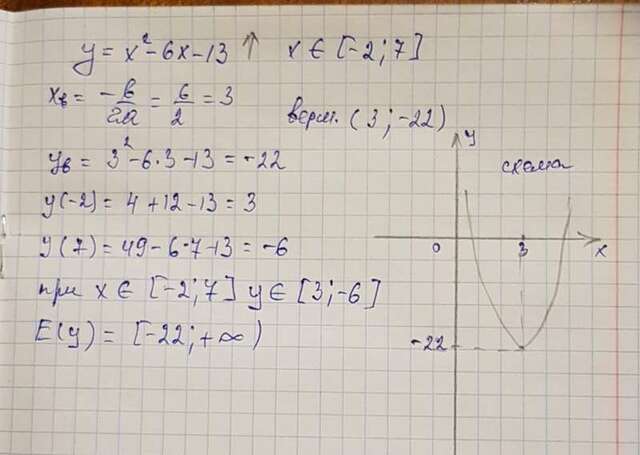 y = x² - 6x - 13 ↑ x ∈ [-2; 7]
xв = -b/2a = 6/2 = 3
верш. (3; -22)
yв = 3² - 6·3 - 13 = -22
y(-2) = 4 + 12 - 13 = 3
y(7) = 49 - 6·7 - 13 = -6
при x ∈ [-2; 7] y ∈ [3; -6]
E(y) = [-22; +∞)
y
схема
0 3 x
-22